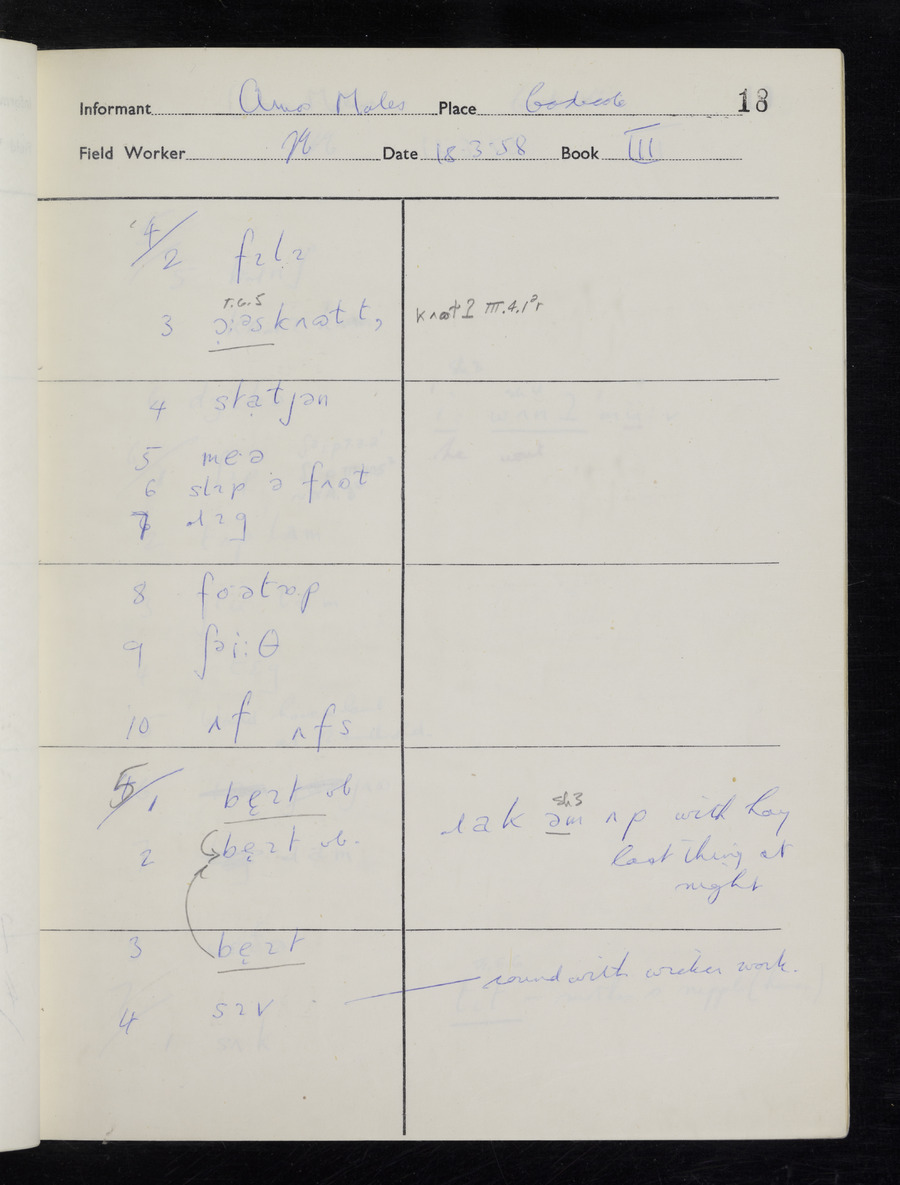 Informant Amos Males Place Codicote 18
Field Worker Date 18.3.58 Book III
4/2 fɪlɪ
3 ɔ:əsknʌɷtt,
4 stətʃən
5 meə
6 slɪp ə fʌɷt
7 ɹɪg
8 foətɒp
9 ʃəi:θ
10 ʌf ʌfs
5/1 bęɪt vb
2 bęɪt vb. ɹak əm ʌp with hay
last thing at
night
3 bęɪt
4 sɪv round with wicker work.